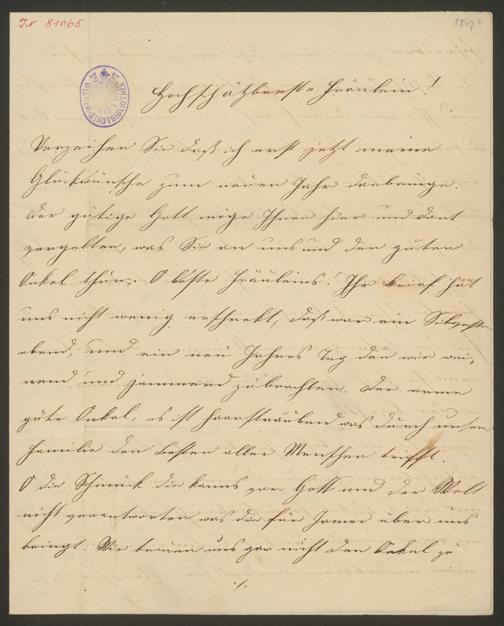 I.N. 81065
Hochschätzbarste Fräulein!
Verzeihen Sie daß ich erst jetzt meine
Glückwünsche zum neuen Jahr darbringe.
Der gütige Gott möge Ihnen hier und dort
vergelten, was Sie an uns und den guten
Onkel thun. O beste Fräuleins! Ihr brief hat
uns nicht wenig erschrekt, daß war ein Silvester
abend, und ein neu Jahres Tag den wir wei-
nend und jammernd zubrachten. Der arme
gute Onkel, es ist haarsträubend was durch unsere
Familie den besten aller Menschen trifft.
O die Schmuck die kanns vor Gott und der Welt
nicht verantworten was die für Jamer über uns
bringt. Wir trauen uns gar nicht den Onkel zu
./.